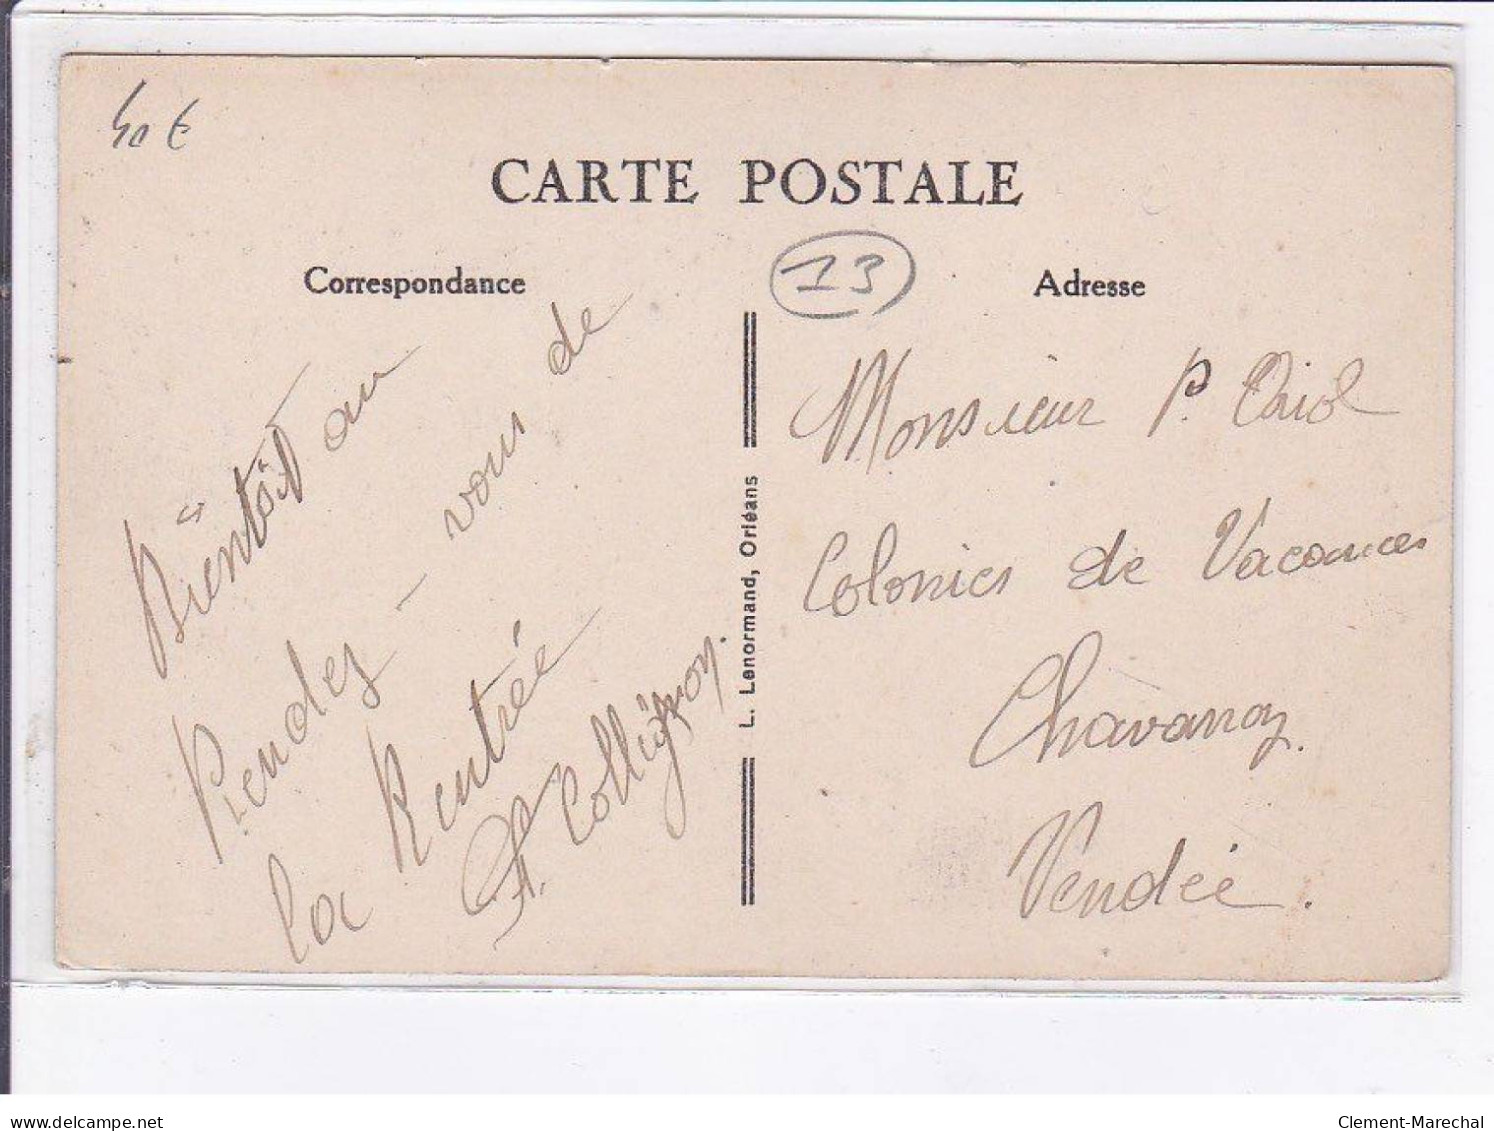 CARTE POSTALE
Correspondance
13
Adresse
Bientôt au
Rendez-vous de
la Rentrée
Collignon.
L. Lenormand, Orléans
Monsieur P. Oriol
Colonies de Vacances
Chavanoy.
Vendée.
delcampe.net
Clement-Marechal